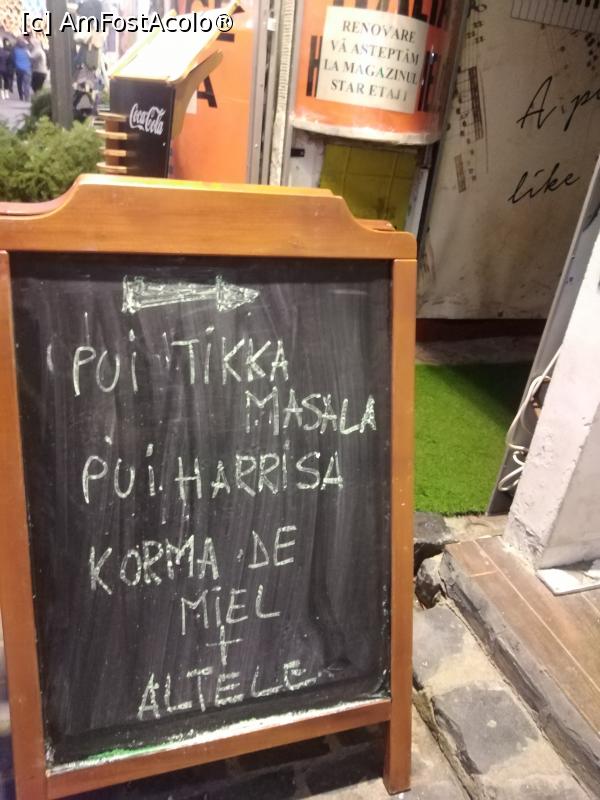 [c] AmFostAcolo®
RENOVARE
VĂ AȘTEPTĂM
LA MAGAZINUL
STAR ETAJ 1
Coca-Cola
A p
like
PUI TIKKA
MASALA
PUI HARRISA
KORMA DE
MIEL
+
ALTELE